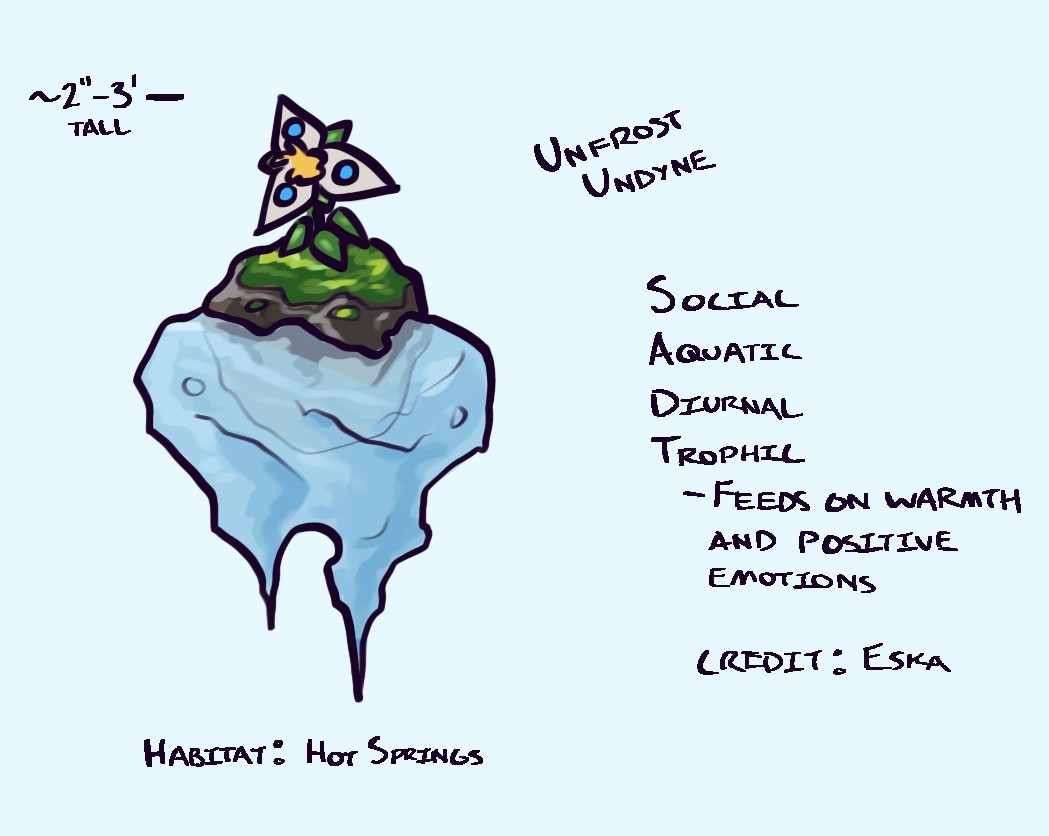 ~2"-3' —
TALL
UNFROST
UNDYNE
SOCIAL
AQUATIC
DIURNAL
TROPHIC
- FEEDS ON WARMTH
AND POSITIVE
EMOTIONS
CREDIT: ESKA
HABITAT: HOT SPRINGS